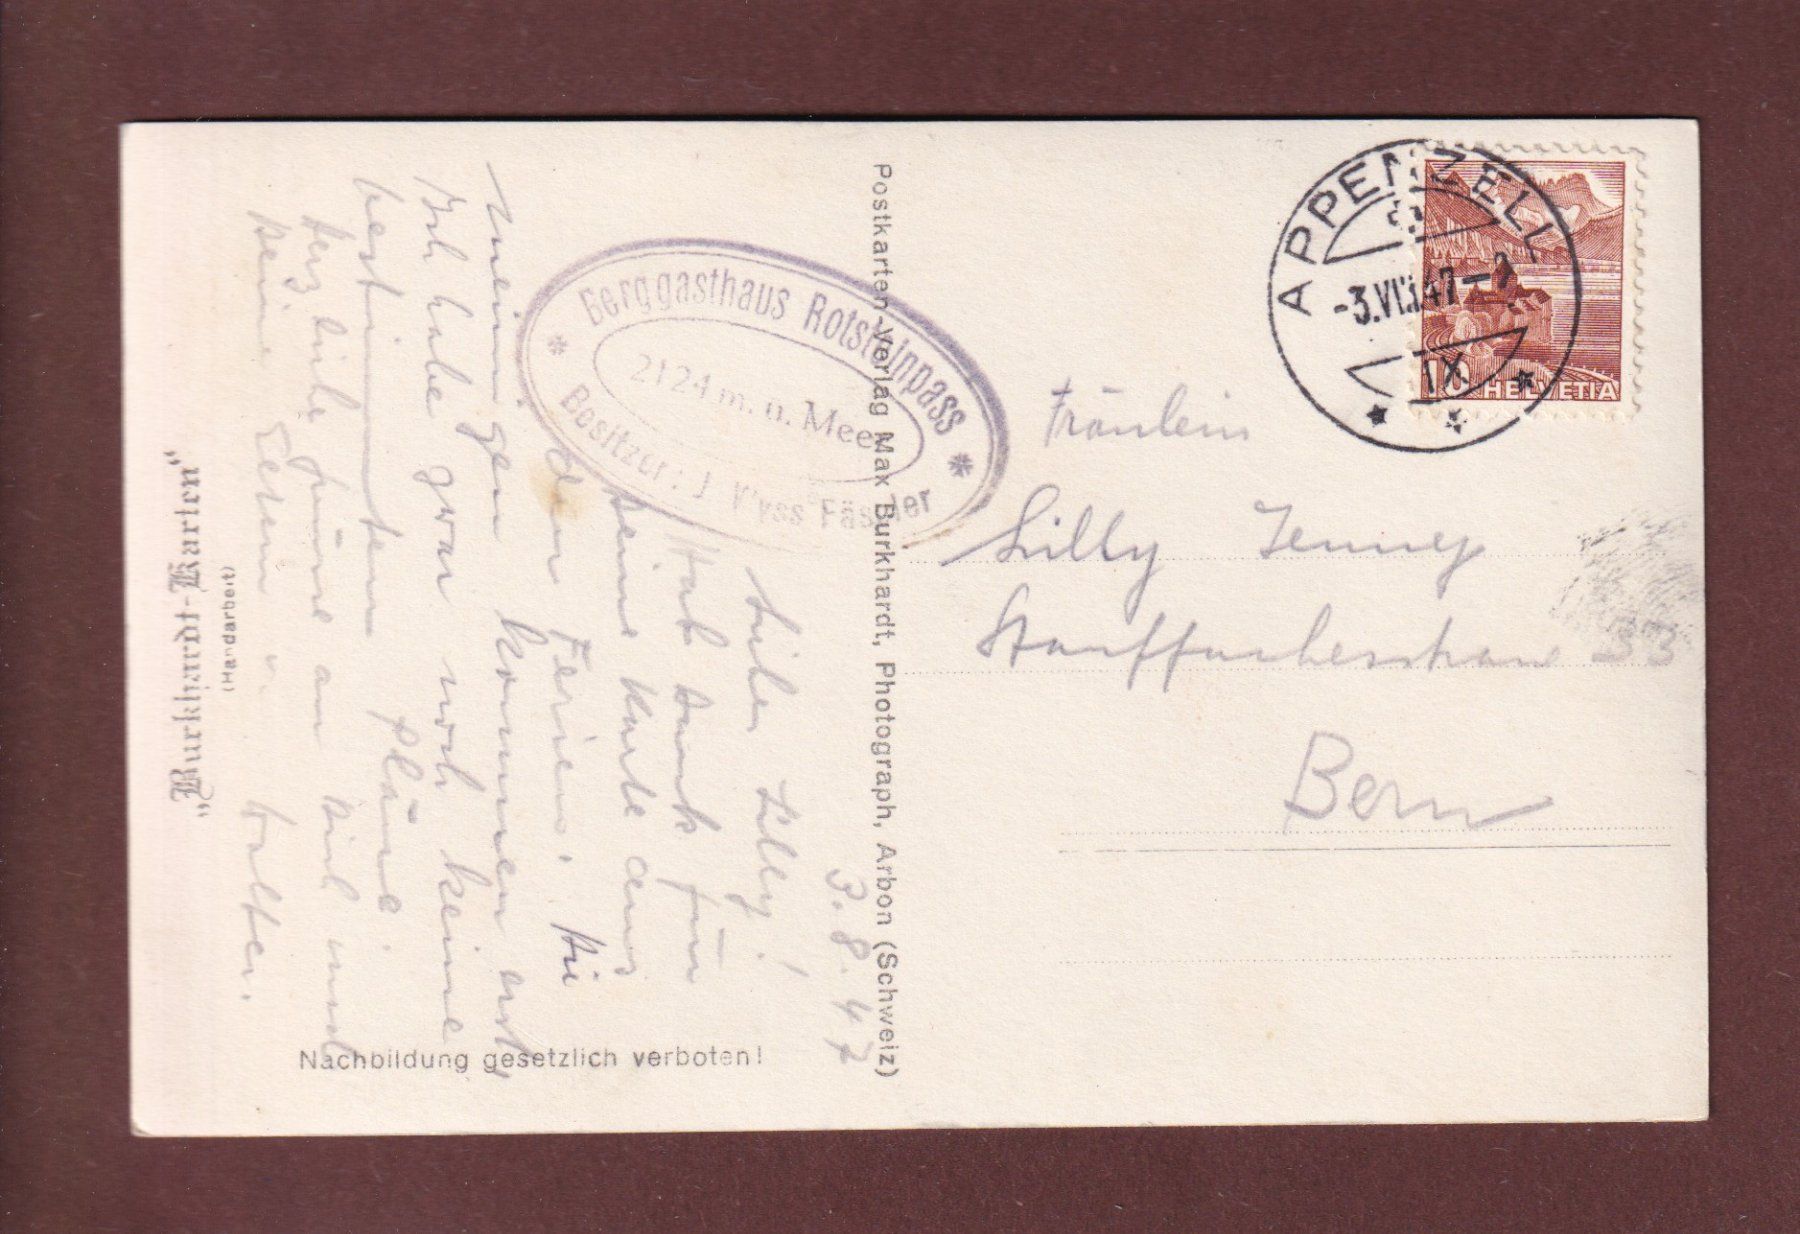 „Burkhardt-Karten“
(Handarbeit)
3.8.47
Lieber Lilly!
Hab Dank für
Deine Karte aus
den Ferien. Die
meinigen kommen erst
Ich habe zwar noch keine
bestimmten Pläne.
Herzliche Grüsse an Dich und
Deine Eltern v. Walter.
Nachbildung gesetzlich verboten!
Berggasthaus Rotsteinpass
2124 m. ü. Meer
Besitzer: J. Wyss Fässler
Postkarten-Verlag Max Burkhardt, Photograph, Arbon (Schweiz)
APPENZELL
-3.VIII.47-
IX
10 HELVETIA
Fräulein
Lilly Jenney
Stauffacherstrasse 33
Bern